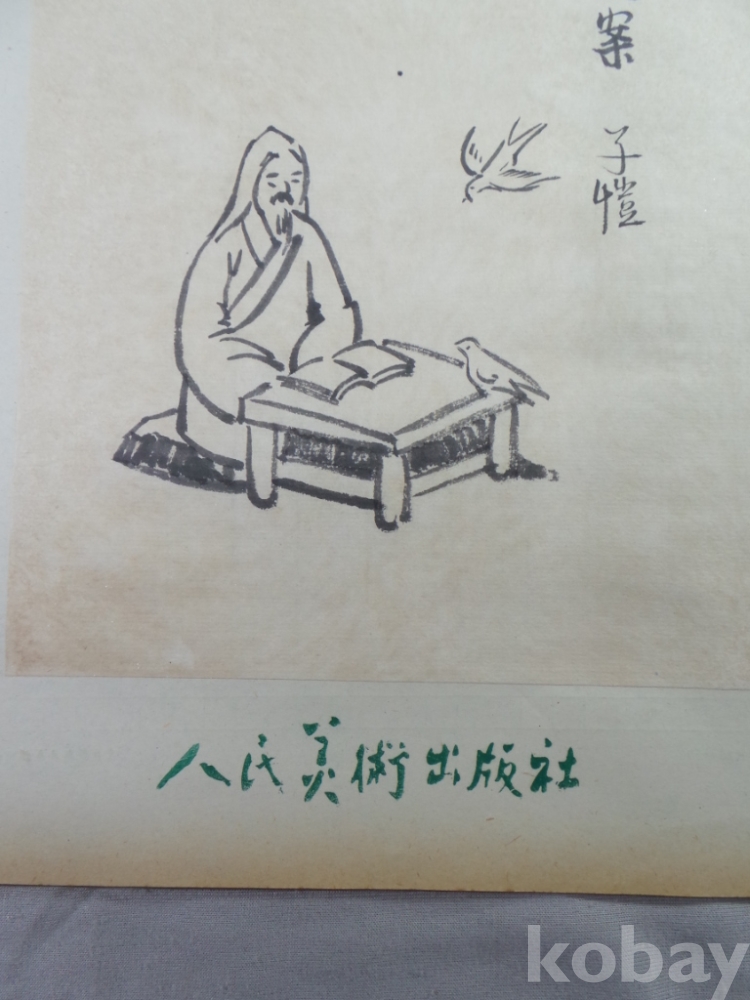 案
子愷
人民美術出版社
kobay